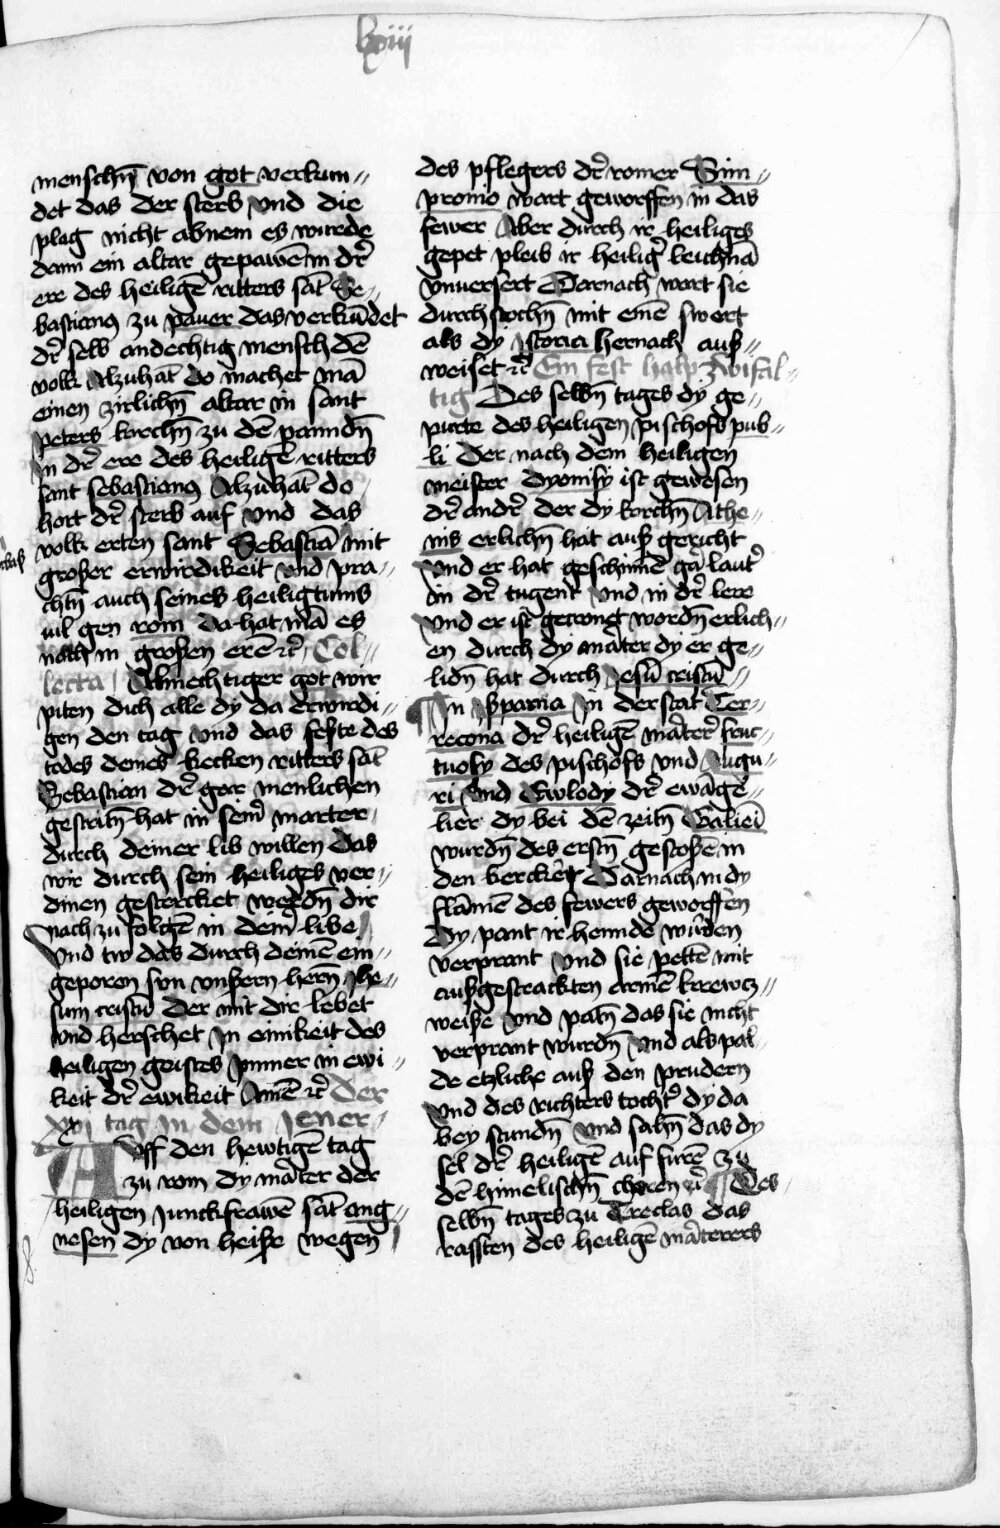 lxiii
menschñ von got verkun⸗
det das der sterb vnd die
plag nicht abnem es wurde
dann ein altar gepawẽ in dr̃
ere des heiligẽ ritters sãt Se⸗
bastianꝯ zu paver das verkündet
dr̃ selb andechtig mensch dẽ
volk Alzuhãt do machet mã
einen zirlichñ altar in sant
peters kirchñ zu dẽ panndñ
in dr̃ ere des heiligẽ ritters
sant sebastianꝯ Alzuhãt do
hort dr̃ sterb auf vnd das
volk erten sant Sebastiã mit
großer erwirdikeit vnd pra⸗
chtñ auch seines heiligtums
uil gen rom da hat mã es
noch in großen erẽ ꝛc̃ Col⸗
lecta Almechtiger got wir
piten dich alle dÿ da erwirdi⸗
gen den tag vnd das feste des
todes deines kecken ritters sãt
Sebastian dr̃ gar menlichen
gestritñ hat in seinr̃ marter
durch deiner lib willen das
wir durch sein heiliges ver⸗
dinen gestercket werdñ dir
nach zu folgẽ in deinr̃ libe
Vnd tw das durch deinẽ ein⸗
geporen sun vnßern hern Jhe⸗
sum cristũ Der mit dir lebet
vnd herschet in einikeit des
heiligen geistes ymmer in ewi⸗
keit dr̃ ewikeit Amẽ ꝛc̃ Der
xxi tag in dem Jener
Auff den hewtigẽ tag
zu rom dÿ marter der
heiligen junckfrawẽ sãt ang⸗
nesen dÿ von heiße wegen
des pflegers dr̃ romer Sim⸗
pronio wart geworffen in das
fewer Aber durch ir heiliges
gepet pleib ir heiligr̃ leichnã
vnuersert Darnach wart sie
durchstochñ mit einẽ swert
als dÿ Istoria hernach auß
weiset ꝛc̃ Ein fest halp zwifal⸗
tig Des selbñ tages dÿ ge⸗
purte des heiligen pischofs pub⸗
li Der nach dem heiligen
meister dyonisÿ ist gewesen
dr̃ andr̃ der dÿ kirchñ Athe⸗
nis erlichñ hat auß gericht
vnd er hat geschinnẽ gar lautr̃
in dr̃ tugent vnd in dr̃ lere
vnd er ist gecronet wordñ erlich⸗
en durch dÿ marter dÿ er ge⸗
lidñ hat durch Jesũ cristũ
In Ispania in der stat Ter⸗
recona dr̃ heiligẽ martrer̃ fruc⸗
tuosÿ des pischofs vnd Augu⸗
ri vnd Ewlodÿ dr̃ ewãge⸗
lier dÿ bei dẽ zeitñ Galieni
wurdñ des erstñ gestoßẽ in
den bercker Darnach in dÿ
flamẽ des fewers geworffen
Dÿ pant ir hennde würden
verprant vnd sie pettẽ mit
außgestrackten armẽ krewcz⸗
weiße vnd patñ das sie nicht
verprant wurdñ vnd als pal⸗
de etzliche auß den prudern
vnd des richters tochtr̃ dÿ da
bey stundñ vnd sahñ das dÿ
sel dr̃ heiligẽ auf furẽ zu
dẽ himelischñ choren ꝛc̃ Des
selbñ tages zu Treclas das
rassten des heiligẽ marterers